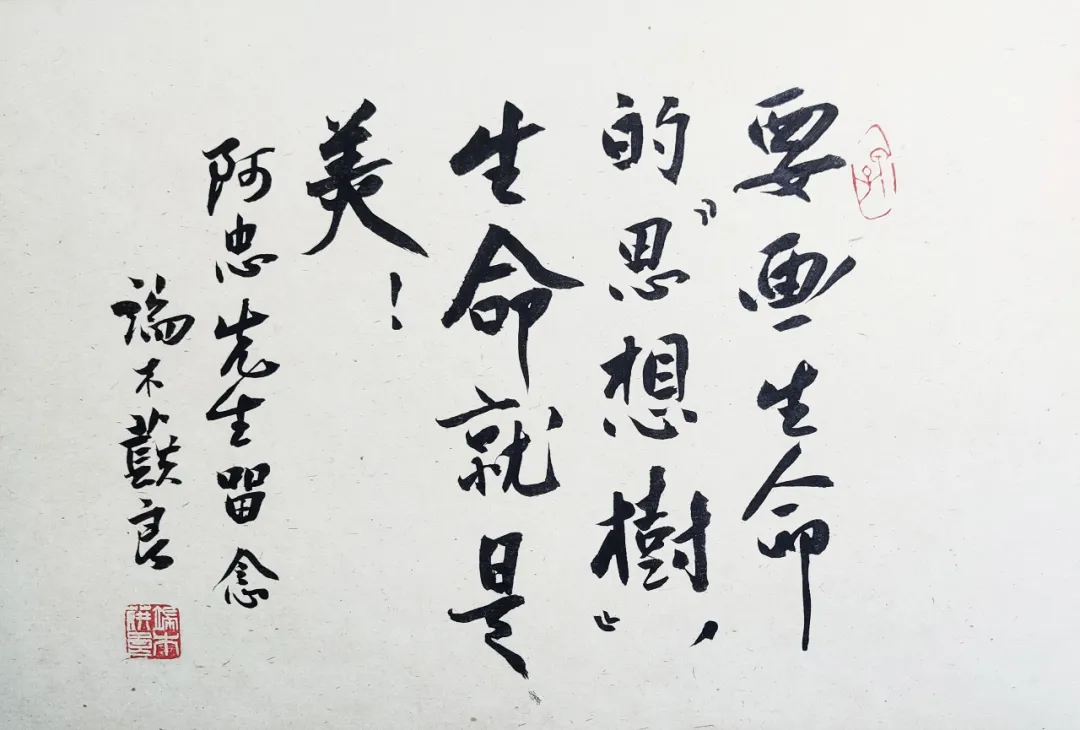 要画生命
的『思想樹』,
生命就是
美!
阿忠先生留念
端木蕻良
端木蕻良